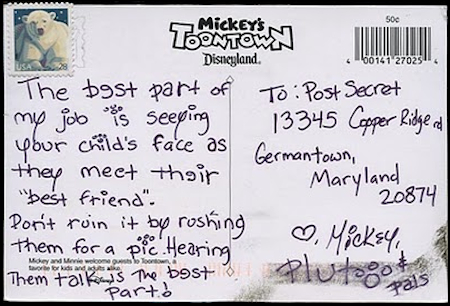 USA 28
Mickey's
Toontown
Disneyland
50¢
4 00141 27025 4
The best part of
my job is seeing
your child's face as
they meet their
"best friend".
Don't ruin it by rushing
them for a pic. Hearing
Them talk is The best
part!
Mickey and Minnie welcome guests to Toontown, a
favorite for kids and adults alike.
To: Post Secret
13345 Copper Ridge rd
Germantown,
Maryland
20874
♡, Mickey,
Pluto &
pals